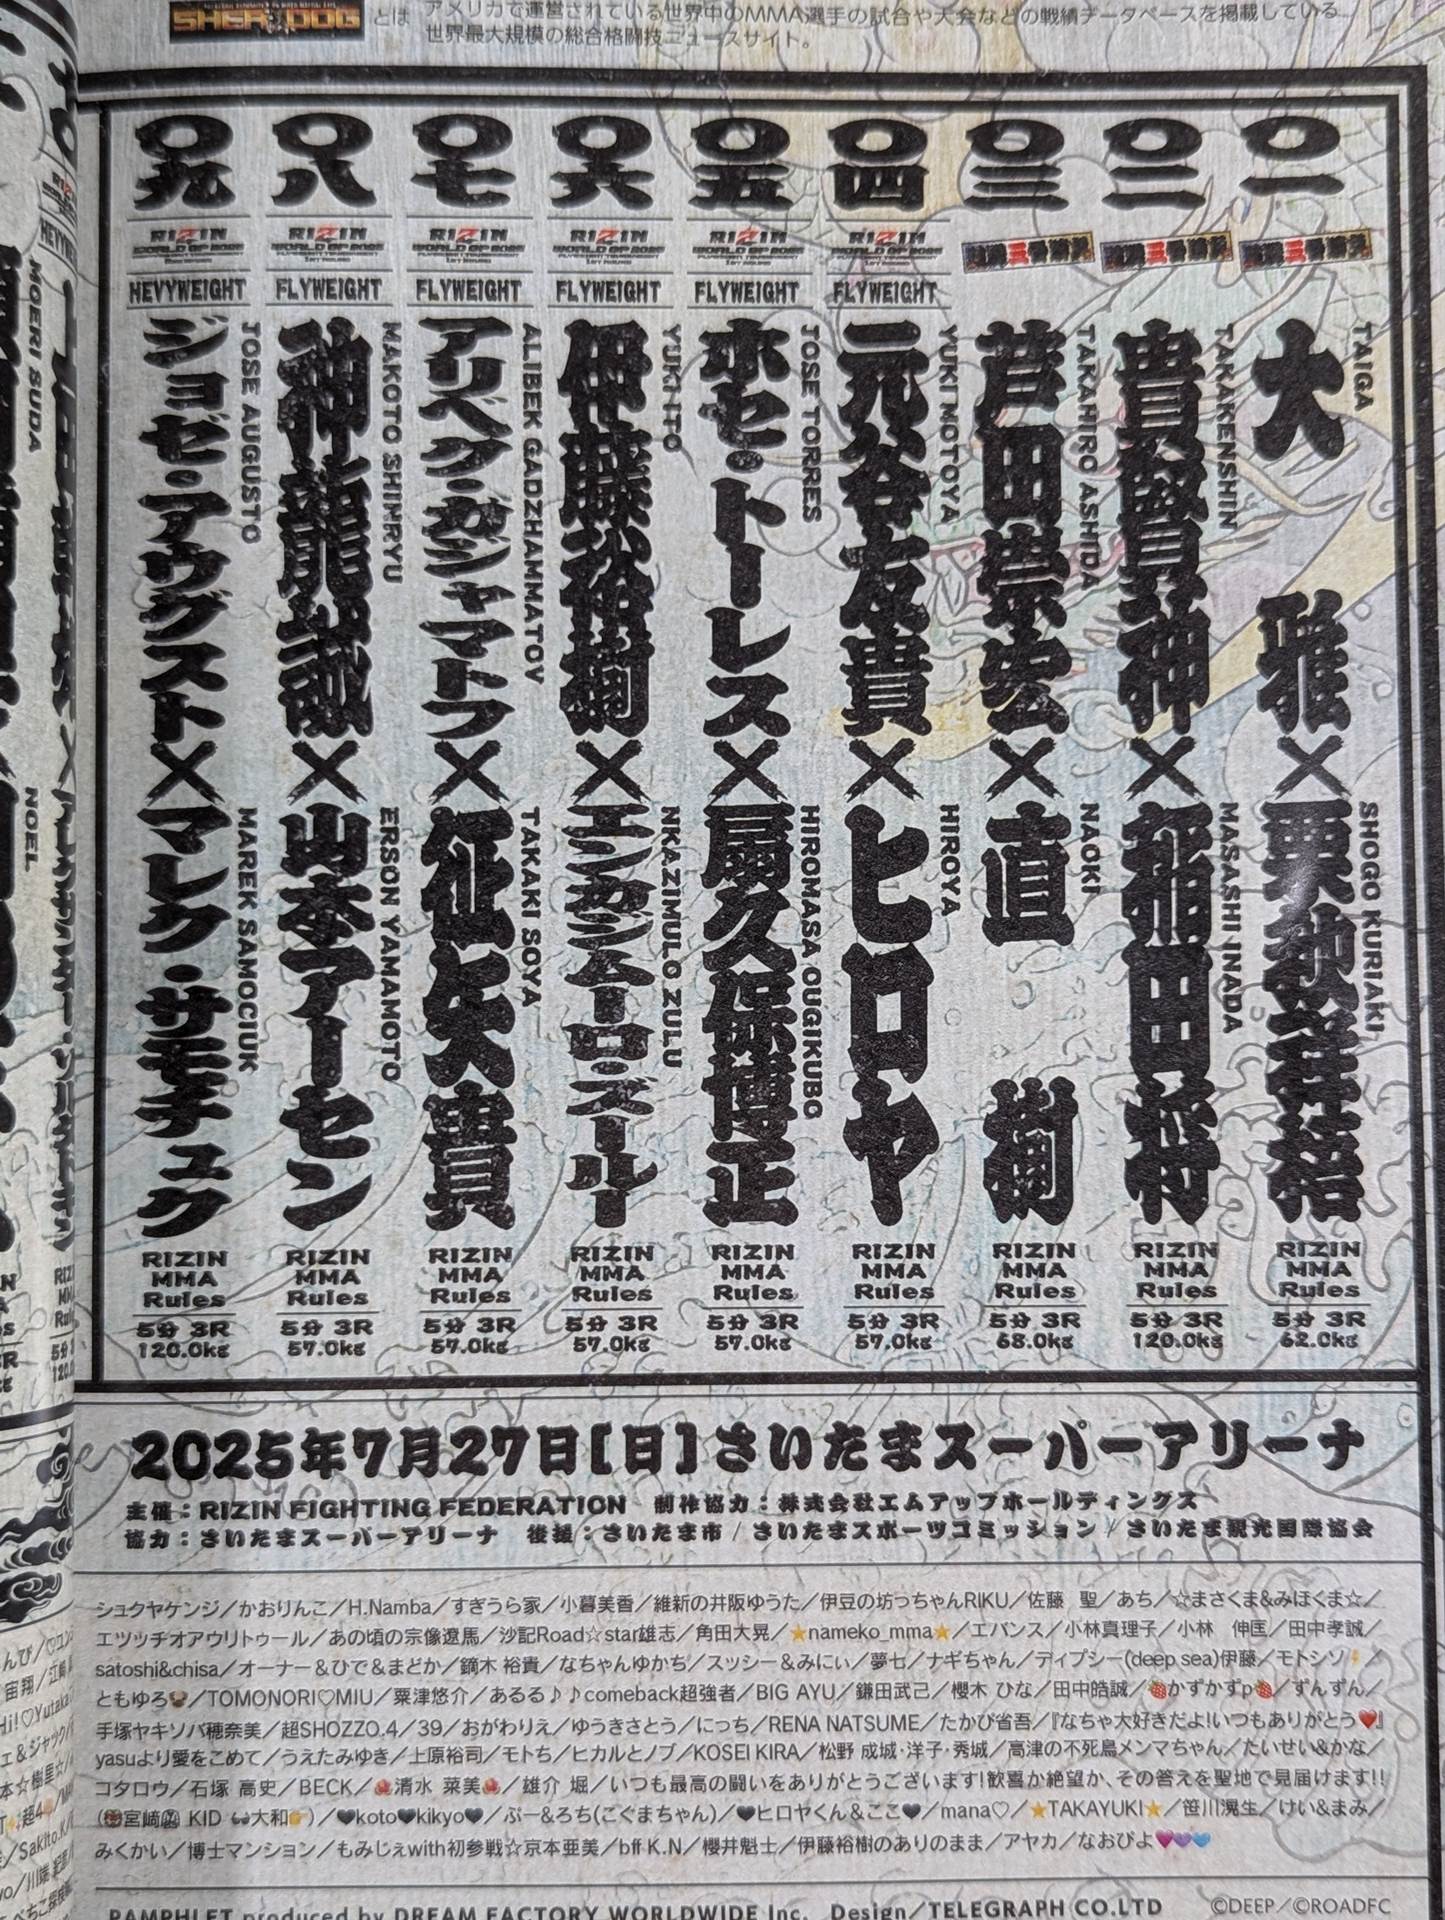 SHERDOG とは
アメリカで運営されている世界中のMMA選手の試合や大会などの戦績データベースを掲載している
世界最大規模の総合格闘技ニュースサイト。
〇一
TAIGA
大雅
×
SHOGO KURIAKI
栗秋祥梧
RIZIN
MMA
Rules
5分 3R
62.0kg
〇二
TAKAKENSHIN
貴賢神
×
MASASHI INADA
稲田将
RIZIN
MMA
Rules
5分 3R
120.0kg
〇三
TAKAHIRO ASHIDA
芦田崇宏
×
NAOKI
直樹
RIZIN
MMA
Rules
5分 3R
68.0kg
〇四
RIZIN
WORLD GP 2025
FLYWEIGHT
YUKI MOTOYA
元谷友貴
×
HIROYA
ヒロヤ
RIZIN
MMA
Rules
5分 3R
57.0kg
〇五
RIZIN
WORLD GP 2025
FLYWEIGHT
JOSE TORRES
ホセ・トーレス
×
HIROMASA OUGIKUBO
扇久保博正
RIZIN
MMA
Rules
5分 3R
57.0kg
〇六
RIZIN
WORLD GP 2025
FLYWEIGHT
YUKI ITO
伊藤裕樹
×
NKAZIMULO ZULU
エンカジムーロ・ズールー
RIZIN
MMA
Rules
5分 3R
57.0kg
〇七
RIZIN
WORLD GP 2025
FLYWEIGHT
ALIBEK GADZHAMMATOV
アリベク・ガジャマトフ
×
TAKAKI SOYA
征矢貴
RIZIN
MMA
Rules
5分 3R
57.0kg
〇八
RIZIN
WORLD GP 2025
FLYWEIGHT
MAKOTO SHINRYU
神龍誠
×
ERSON YAMAMOTO
山本アーセン
RIZIN
MMA
Rules
5分 3R
57.0kg
〇九
RIZIN
WORLD GP 2025
HEVYWEIGHT
JOSE AUGUSTO
ジョゼ・アウグスト
×
MAREK SAMOCIUK
マレク・サモチュク
RIZIN
MMA
Rules
5分 3R
120.0kg
MOERI SUDA
NOEL
2025年7月27日[日]さいたまスーパーアリーナ
主催：RIZIN FIGHTING FEDERATION 制作協力：株式会社エムアップホールディングス
協力：さいたまスーパーアリーナ 後援：さいたま市 / さいたまスポーツコミッション / さいたま観光国際協会
シュクヤケンジ／かおりんこ／H.Namba／すぎうら家／小暮美香／維新の井阪ゆうた／伊豆の坊っちゃんRIKU／佐藤 聖／あち／☆まさくま&みほくま☆／
エツッチオアウリトゥール／あの頃の宗像遼馬／沙記Road☆star雄志／角田大晃／⭐nameko_mma⭐／エバンス／小林真理子／小林 伸匡／田中孝誠／
satoshi&chisa／オーナー＆ひで＆まどか／鏑木 裕貴／なちゃんゆかち／スッシー＆みにぃ／夢七／ナギちゃん／ディプシー(deep sea)伊藤／モトシソ⚡／
ともゆろ／TOMONORI♡MIU／粟津悠介／あるる♪♪comeback超強者／BIG AYU／鎌田武己／櫻木 ひな／田中皓誠／🍓かずかずp🍓／ずんずん／
手塚ヤキソバ穂奈美／超SHOZZO.4／39／おがわりえ／ゆうきさとう／にっち／RENA NATSUME／たかぴ省吾／『なちゃ大好きだよ!いつもありがとう❤️』
yasuより愛をこめて／うえたみゆき／上原裕司／モトち／ヒカルとノブ／KOSEI KIRA／松野 成城・洋子・秀城／高津の不死鳥メンマちゃん／たいせい&かな／
コタロウ／石塚 高史／BECK／🌺清水 菜美🌺／雄介 堀／いつも最高の闘いをありがとうございます!歓喜か絶望か、その答えを聖地で見届けます!!
KID 大和／🖤koto🖤kikyo🖤／ぶー&ろち(こぐまちゃん)／🖤ヒロヤくん＆ここ🖤／mana♡／⭐TAKAYUKI⭐／笹川滉生／けい&まみ／
みくかい／博士マンション／もみじぇwith初参戦☆京本亜美／bff K.N／櫻井魁士／伊藤裕樹のありのまま／アヤカ／なおぴよ💗💜💙
PAMPHLET produced by DREAM FACTORY WORLDWIDE Inc. Design／TELEGRAPH CO.LTD ©DEEP／©ROADFC